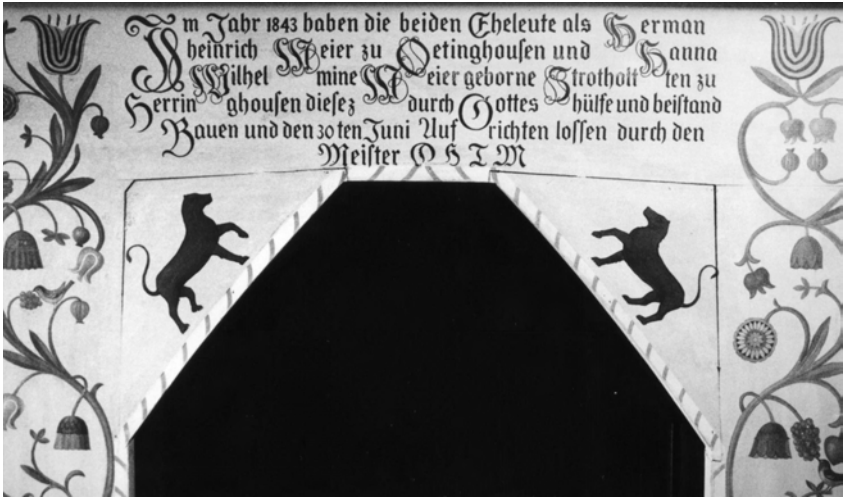 Im Jahr 1843 haben die beiden Eheleute als Herman
heinrich Meier zu Oetinghousen und Hanna
Wilhel mine Meier geborne Strotholt ten zu
Herrin ghousen diesez durch Gottes hülfe und beistand
Bauen und den 30 ten Juni Auf richten lossen durch den
Meister O H T M